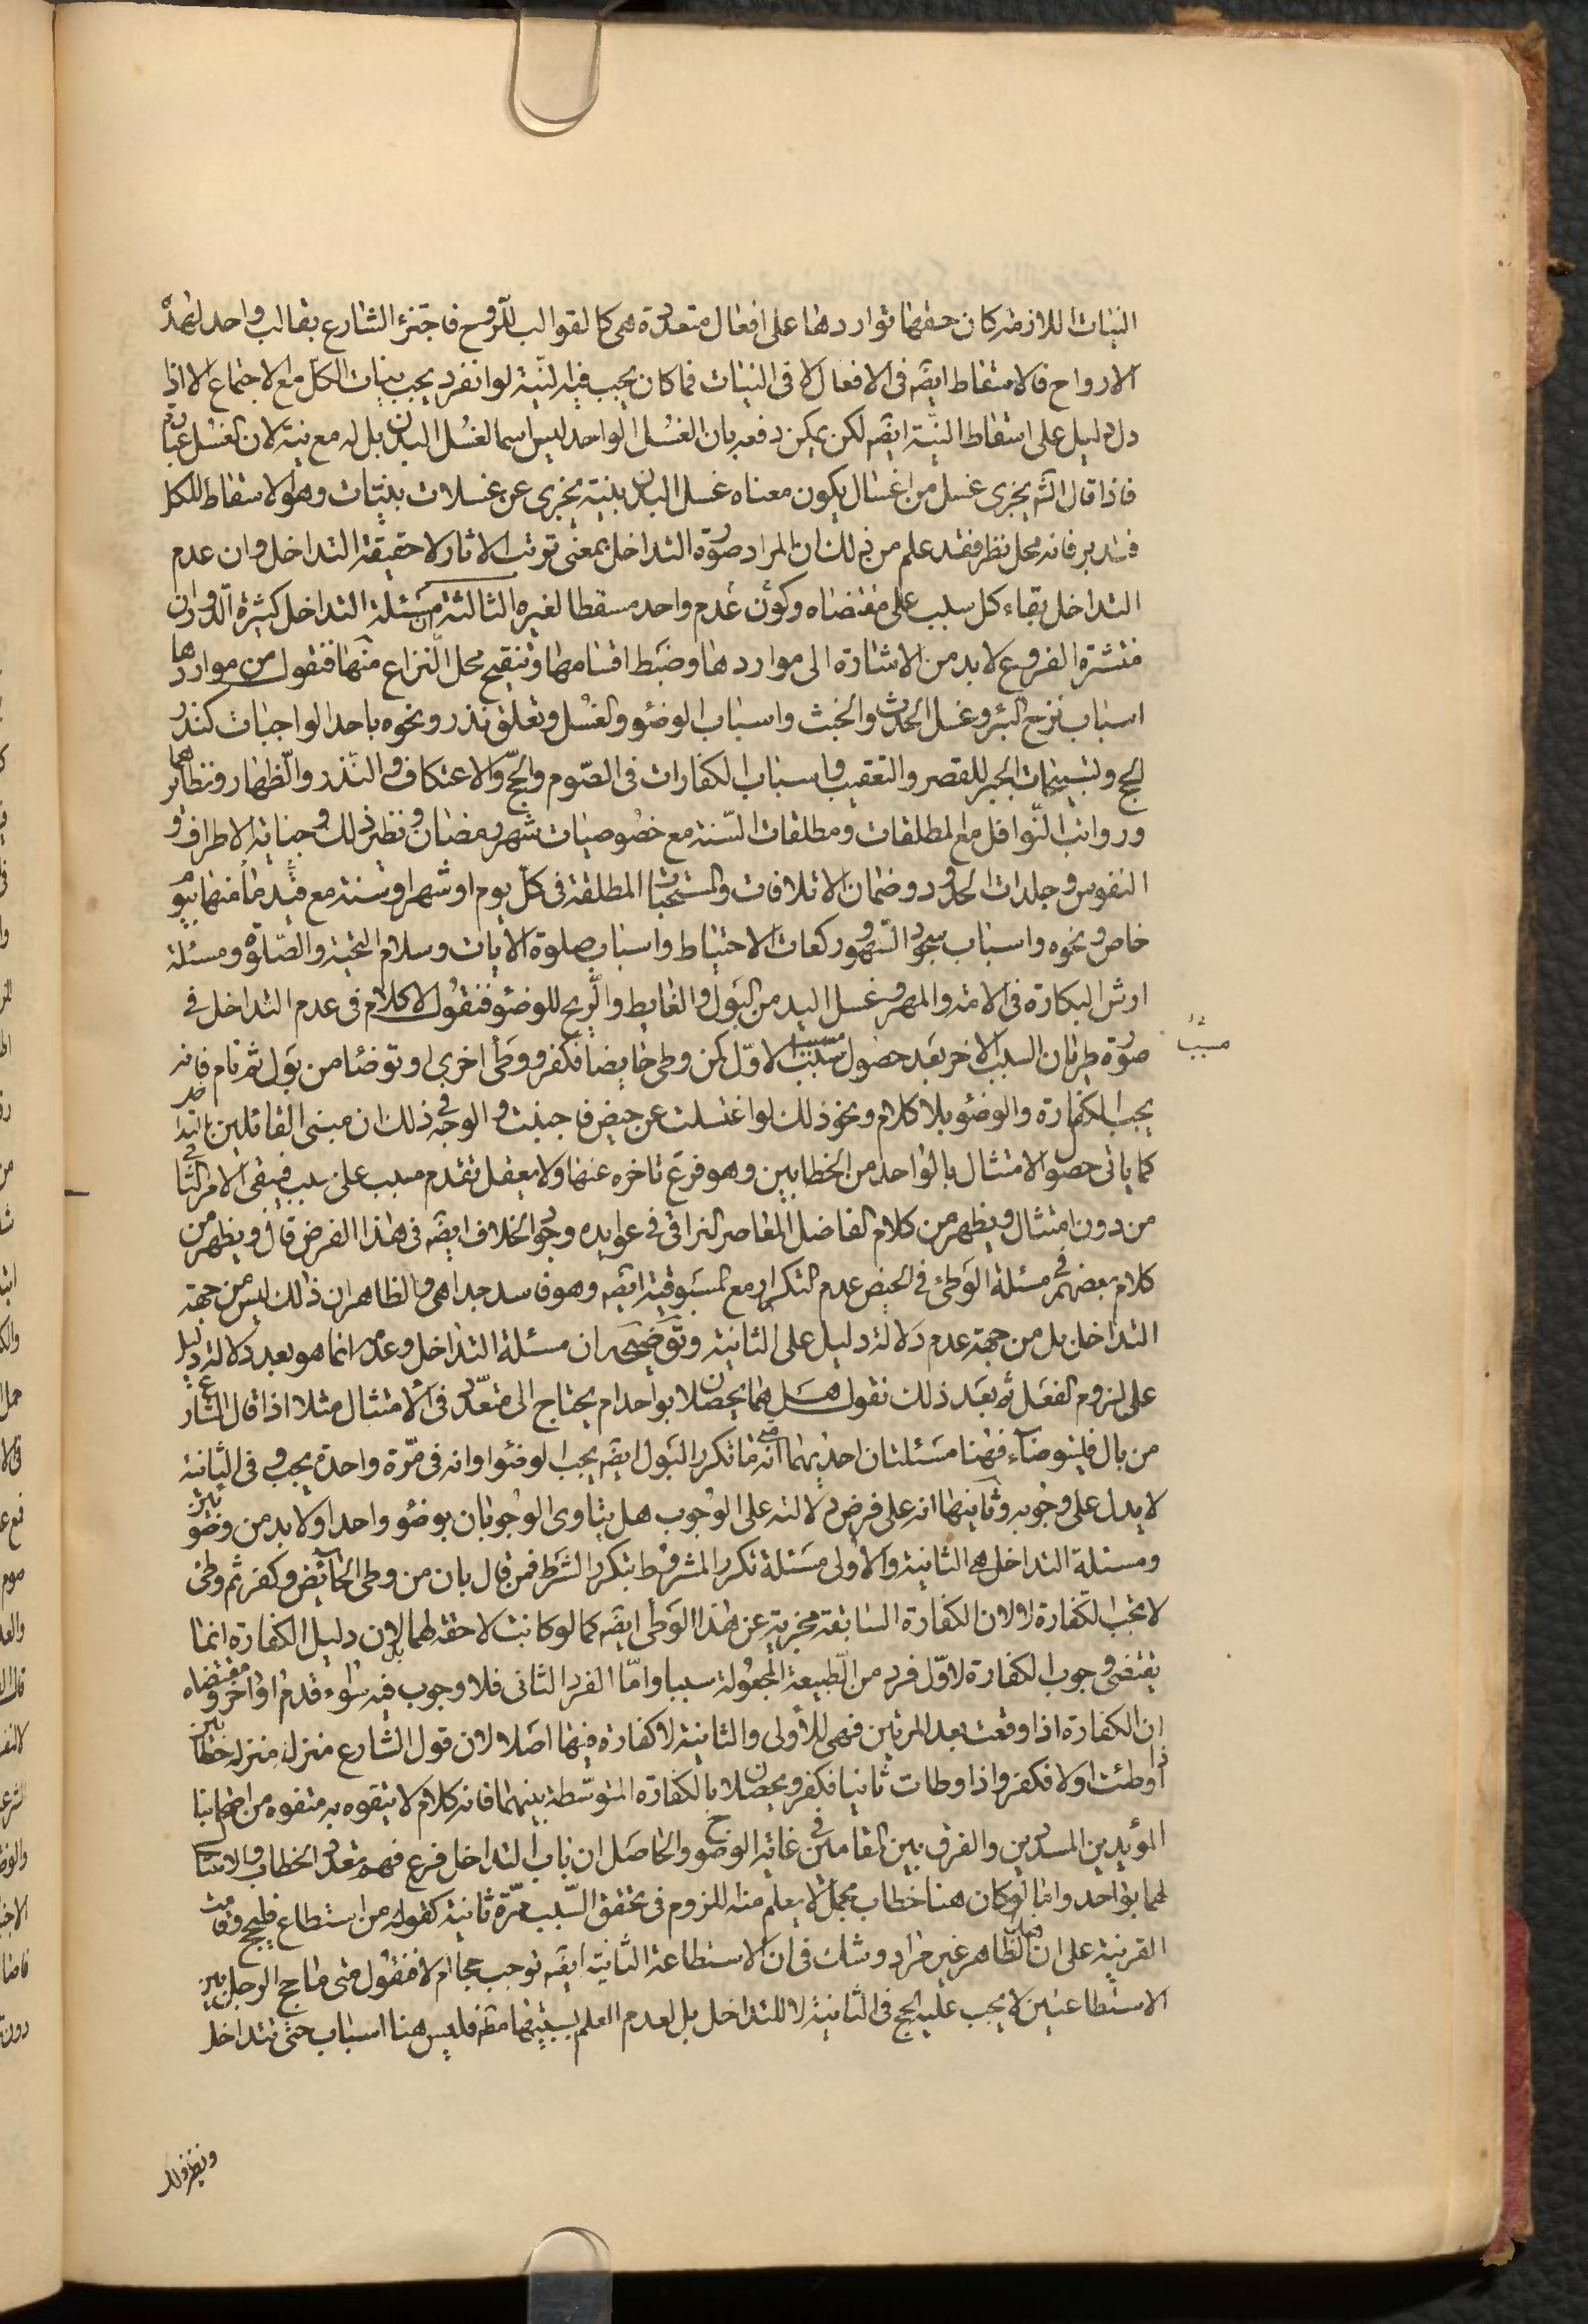 النيات اللازمة كان حقها تواردها على افعال متعددة هى كالقوالب للروح فاجتزء الشارع بقالب واحد لهذه
الارواح فالاسقاط ايضه فى الافعال لا فى النيات فما كان يجب فيه النية لو انفرد يجب بنيات الكل مع الاجتماع الا اذا
دل دليل على اسقاط النية ايضه لكن يمكن دفعه بان الغسل الواحد ليس اسما لغسل البدن بل له مع نية لان الغسل عبادة
فاذا قال الشم يجزى غسل من اغسال يكون معناه غسل البدن بنية يجزى عن غسلات بنيات وهو الاسقاط للكل
فتدبر فانه محل نظر فقد علم من ذلك ان المراد صورة التداخل بمعنى ترتب الاثار لا حقيقة التداخل وان عدم
التداخل بقاء كل سبب على مقتضاه وكون عدم واحد مسقطا لغيره الثالثة ان مسئلة التداخل كثيرة الدوران
منتشرة الفروع لا بد من الاشارة الى مواردها وضبط اقسامها وتنقيح محل النزاع منها فنقول من مواردها
اسباب نزح البئر وغسل الحدث والخبث واسباب الوضوء والغسل وتعلق نذر ونحوه باحد الواجبات كنذر
الحج وتسبيحات الجبر للقصر والتعقيب واسباب الكفارات فى الصوم والحج والاعتكاف والنذر والظهار ونظائرهما
ورواتب النوافل مع المطلقات ومطلقات السنة مع خصوصيات شهر رمضان ونظير ذلك وجناية الاطراف و
النفوس وجلدات الحدود وضمان الاتلافات والمستحبات المطلقة فى كل يوم او شهر او سنة مع قيد ما منها بيوم
خاص ونحوه واسباب سجود السهو وركعات الاحتياط واسباب صلوة الايات وسلام التحية والصلوة ومسئلة
ارش البكارة فى الامة والمهر وغسل اليد من البول والغايط والريح للوضوء فنقول لا كلام فى عدم التداخل فى
صورة طريان السبب الاخر بعد حصول مسبب الاول كمن وطى حايضا فكفر ووطأ اخرى او توضا من بول ثم نام فانه
يجب الكفارة والوضوء بلا كلام ونحو ذلك لو اغتسلت عن حيض فاجنبت والوجه فى ذلك ان مبنى القائلين بالتداخل
كما ياتى حصول الامتثال بالواحد من الخطابين وهو فرع تاخره عنها ولا يعقل تقدم مسبب على سبب فيبقى الامر الثانى
من دون امتثال ويظهر من كلام الفاضل المعاصر النراقى فى عوايده وجود الخلاف ايضه فى هذا الفرض قال ويظهر من
كلام بعضهم فى مسئلة الوطئ فى الحيض عدم التكرار مع المسبوقية ايضه وهو فاسد جدا هى والظاهر ان ذلك ليس من جهة
التداخل بل من جهة عدم دلالة دليل على الثانية وتوضيحه ان مسئلة التداخل وعدمه انما هو بعد دلالة دليل
على لزوم الفعل ثم بعد ذلك نقول هل هما يحصلان بواحد ام يحتاج الى متعدد فى الامتثال مثلا اذا قال الشارع
من بال فليتوضاء فهنا مسئلتان احديهما انه متى ما تكرر البول ايضه يجب الوضوء او انه فى مرة واحدة يجب وفى الثانية
لا يدل على وجوبه وثانيتها انه على فرض دلالته على الوجوب هل يتاوى الوجوبان بوضوء واحد او لا بد من وضوئين
ومسئلة التداخل هى الثانية والاولى مسئلة تكرر المشروط بتكرر الشرط فمن قال بان من وطى الحائض وكفر ثم وطى
لا يجب الكفارة لا لان الكفارة السابقة مجزية عن هذا الوطى ايضه كما لو كانت لاحقة لهما بل لان دليل الكفارة انما
يقتضى وجوب الكفارة لاول فرد من الطبيعة المجعولة سببا واما الفرد الثانى فلا وجوب فيه سواء قدم او اخر ومقتضاه
ان الكفارة اذا وقعت بعد المرتين فهى للاولى والثانية لا كفارة فيها اصلا لان قول الشارع منزلة منزلة خطابين
اذا وطئت اولا فكفر واذا وطات ثانيا فكفر ويحصلان بالكفارة المتوسطة بينهما فانه كلام لا يتفوه به متفوه من اصحابنا
المؤيدين المسددين والفرق بين المقامين فى غاية الوضوح والحاصل ان باب التداخل فرع فهم تعدد الخطاب والامتثال
لهما بواحد واما لو كان هنا خطاب مجمل لا يعلم منه اللزوم فى تحقق السبب مرة ثانية كقوله من استطاع فليحج وقامت
القرينة على ان الظاهر غير مراد وشك فى ان الاستطاعة الثانية ايضه توجب حجا ام لا فنقول متى ما حج الرجل بين
الاستطاعتين لا يجب عليه الحج فى الثانية لا للتداخل بل لعدم العلم بسببيتها مثه فليس هنا اسباب حتى تتداخل
مسبب
ونظير ذلك